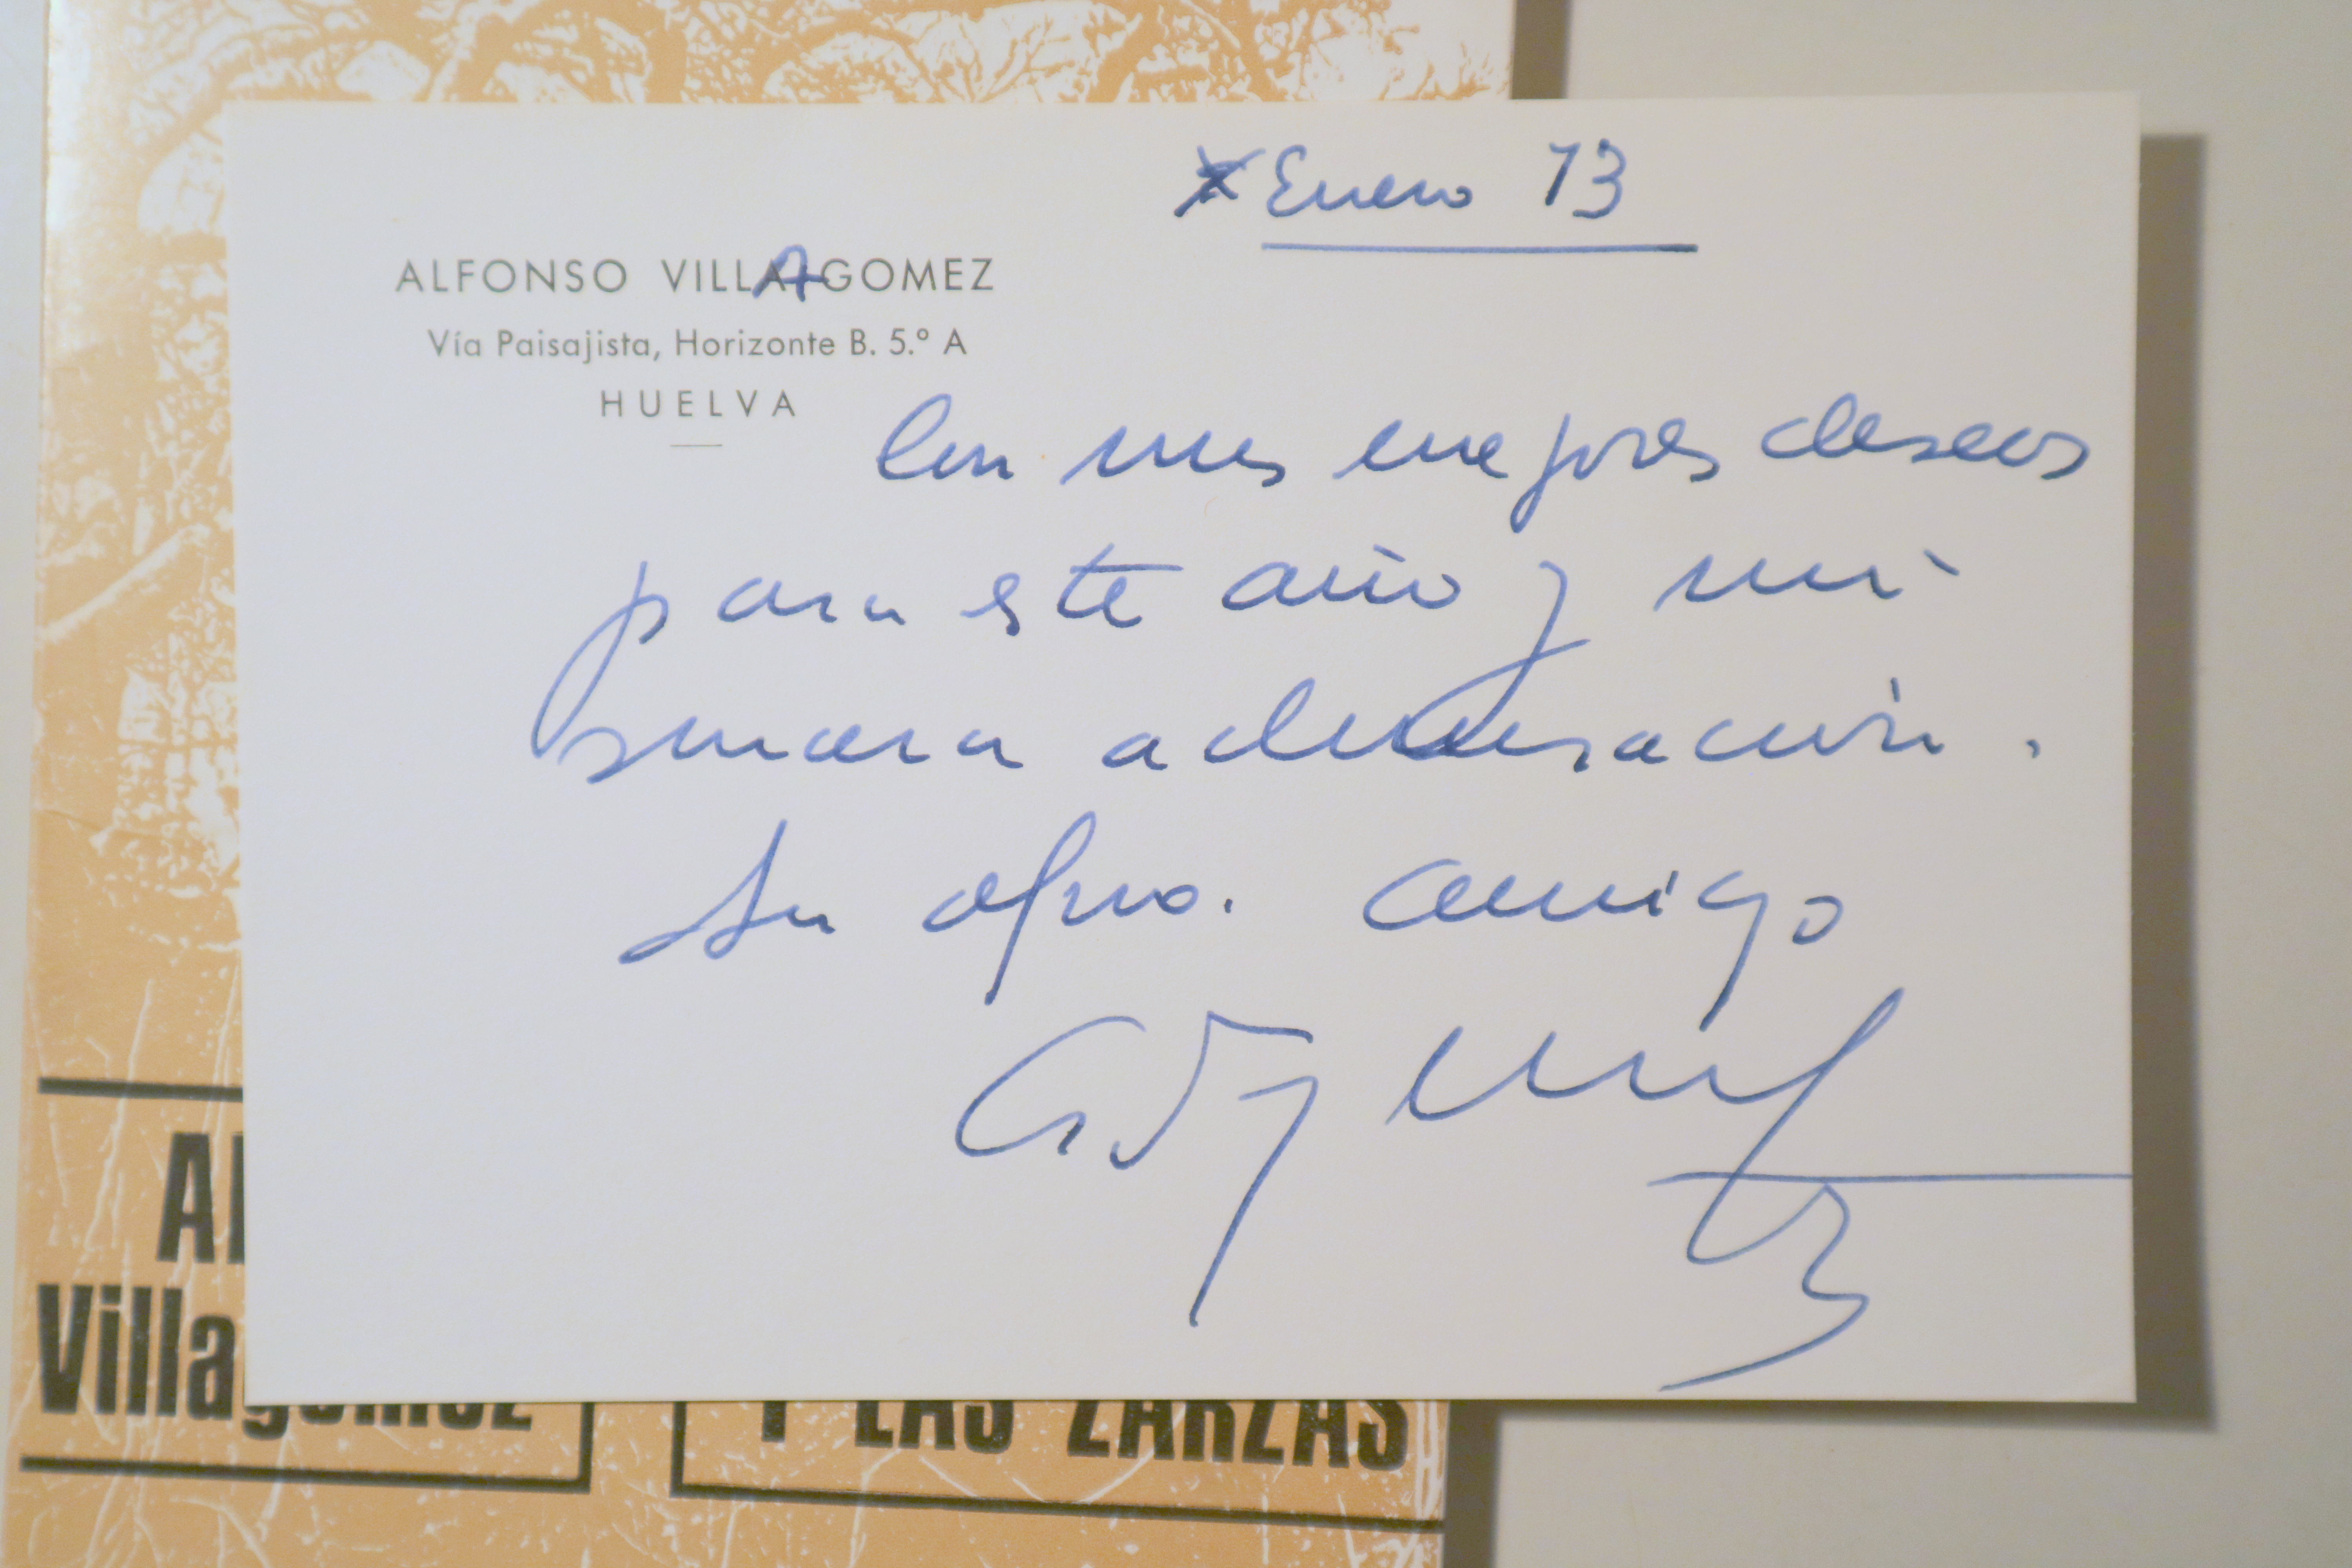 Enero 73
ALFONSO VILLAGOMEZ
Vía Paisajista, Horizonte B. 5.º A
HUELVA
Con mis mejores deseos
para este año y mi
sincera admiración.
Su afmo. amigo
Villagomez
Y LAS ZARZAS